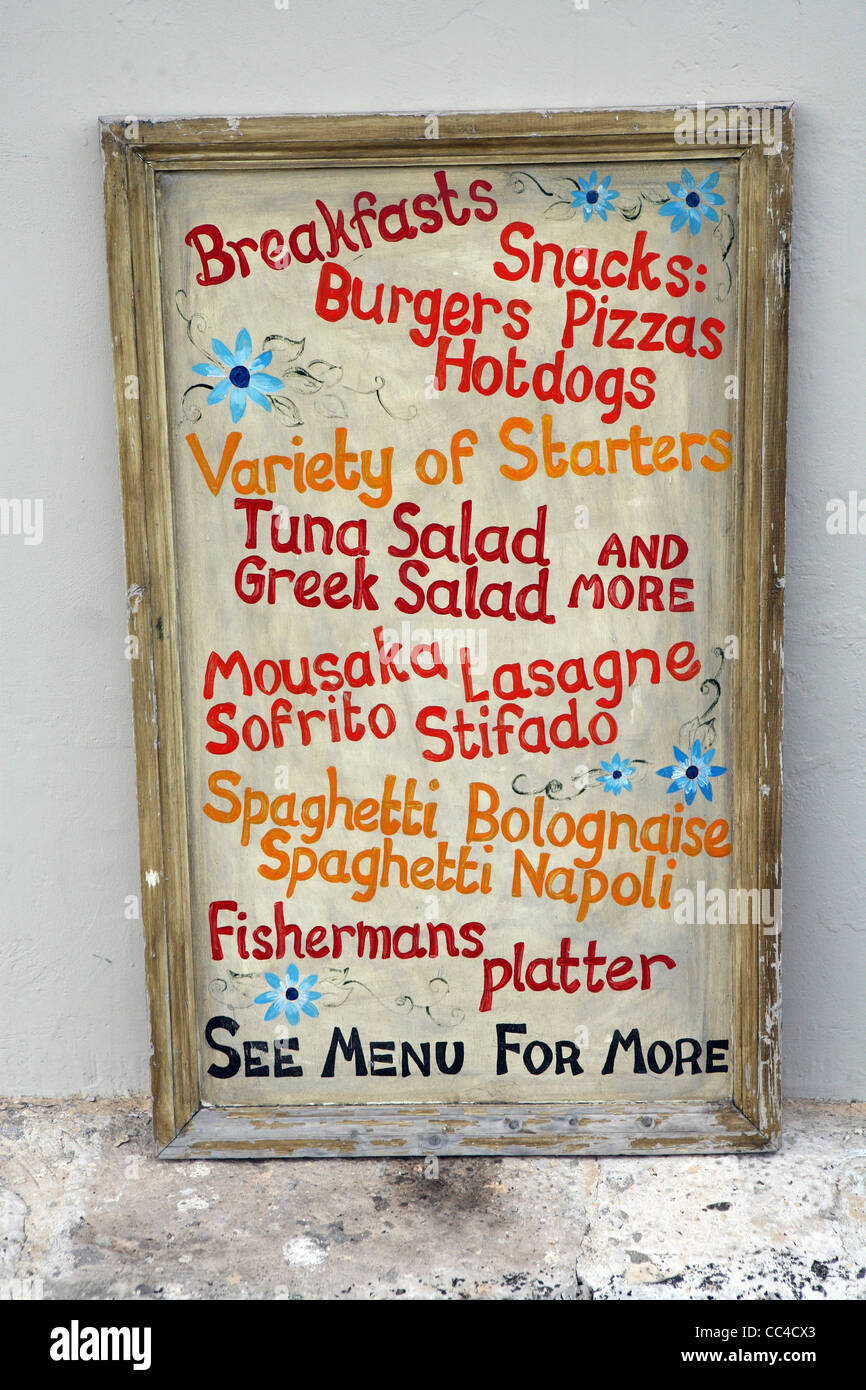 Breakfasts
Snacks:
Burgers Pizzas
Hotdogs
Variety of Starters
Tuna Salad AND
Greek Salad MORE
Mousaka Lasagne
Sofrito Stifado
Spaghetti Bolognaise
Spaghetti Napoli
Fishermans
platter
SEE MENU FOR MORE
alamy
Image ID: CC4CX3
www.alamy.com